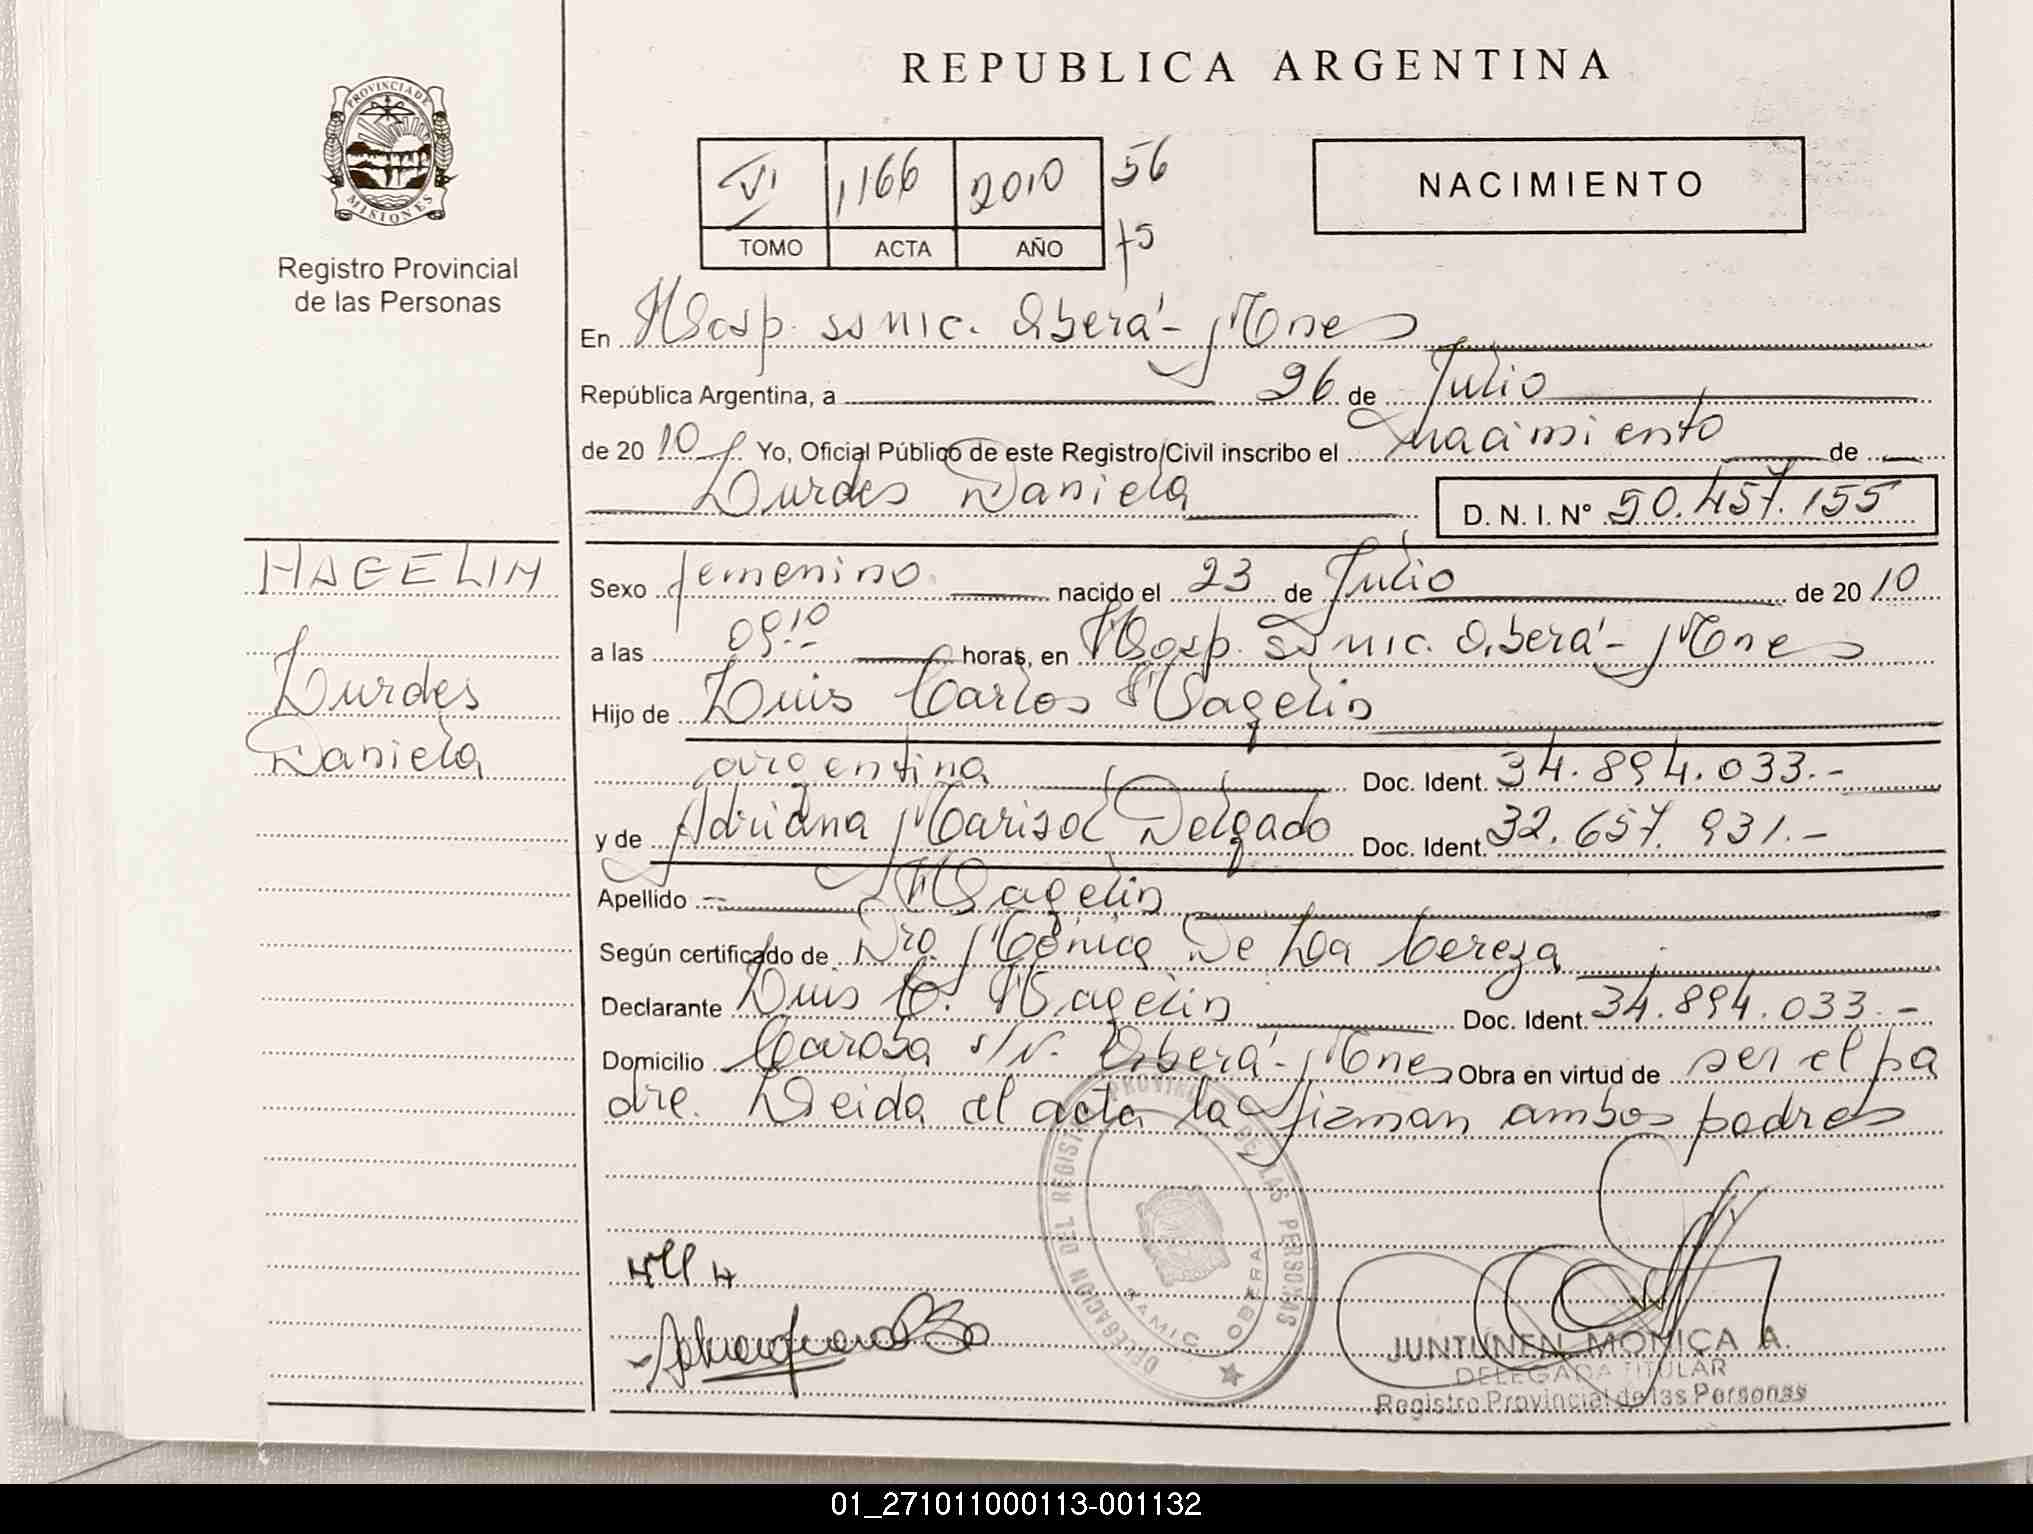 REPUBLICA ARGENTINA
PROVINCIA DE
MISIONES
Registro Provincial
de las Personas
VI 1166 2010 56
TOMO ACTA AÑO 75
NACIMIENTO
En Hosp. ss mic. Oberá - Mnes
República Argentina, a 26 de Julio
de 20 10 Yo, Oficial Público de este Registro Civil inscribo el nacimiento de
Lurdes Daniela D. N. I. Nº 50.457.155
HAGELIN
Lurdes
Daniela
Sexo femenino nacido el 23 de Julio de 20 10
a las 09:10 horas, en Hosp. ss mic. Oberá - Mnes
Hijo de Luis Carlos Hagelin
argentina Doc. Ident. 34.894.033.-
y de Adriana Marisol Delgado Doc. Ident. 32.657.931.-
Apellido Hagelin
Según certificado de Dra Mónica De La Cereza
Declarante Luis C. Hagelin Doc. Ident. 34.894.033.-
Domicilio Caroba s/N. Oberá - Mnes Obra en virtud de ser el pa
dre. Leida el acta la firman ambos padres
DELEGACION DEL REGISTRO PROVINCIAL DE LAS PERSONAS
SAMIC OBERA
JUNTUNEN MONICA A.
DELEGADA TITULAR
Registro Provincial de las Personas
01_271011000113-001132